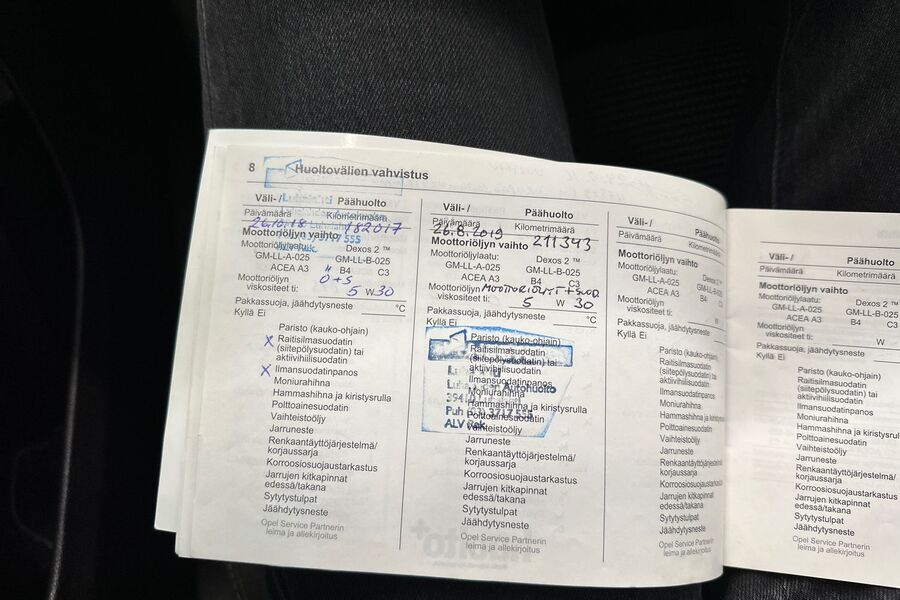 8 Huoltovälien vahvistus
Väli- / Päähuolto
Päivämäärä Kilometrimäärä
26.10.18 182017
Moottoriöljyn vaihto
Moottoriöljylaatu: Dexos 2 ™
GM-LL-A-025 GM-LL-B-025
ACEA A3 B4 C3
Ö + S
Moottoriöljyn
viskositeetti: 5 W 30
Pakkassuoja, jäähdytysneste °C
Kyllä Ei
Paristo (kauko-ohjain)
X Raitisilmasuodatin
(siitepölysuodatin) tai
aktiivihiilisuodatin
X Ilmansuodatinpanos
Moniurahihna
Hammashihna ja kiristysrulla
Polttoainesuodatin
Vaihteistoöljy
Jarruneste
Renkaantäyttöjärjestelmä/
korjaussarja
Korroosiosuojaustarkastus
Jarrujen kitkapinnat
edessä/takana
Sytytystulpat
Jäähdytysneste
Opel Service Partnerin
leima ja allekirjoitus
Väli- / Päähuolto
Päivämäärä Kilometrimäärä
26.8.2019 211343
Moottoriöljyn vaihto
Moottoriöljylaatu: Dexos 2 ™
GM-LL-A-025 GM-LL-B-025
ACEA A3 B4 C3
Moottoriöljyn
viskositeetti: 5 W 30
Pakkassuoja, jäähdytysneste °C
Kyllä Ei
Paristo (kauko-ohjain)
Raitisilmasuodatin
(siitepölysuodatin) tai
aktiivihiilisuodatin
Ilmansuodatinpanos
Autohuolto
Moniurahihna
Hammashihna ja kiristysrulla
Puh 3717 555
Polttoainesuodatin
ALV Rek.
Vaihteistoöljy
Jarruneste
Renkaantäyttöjärjestelmä/
korjaussarja
Korroosiosuojaustarkastus
Jarrujen kitkapinnat
edessä/takana
Sytytystulpat
Jäähdytysneste
Opel Service Partnerin
leima ja allekirjoitus
Väli- /
Päivämäärä Kilometrimäärä
Moottoriöljyn vaihto
Moottoriöljylaatu:
GM-LL-A-025
ACEA A3 B4
Moottoriöljyn
viskositeetti: W
Pakkassuoja, jäähdytysneste
Kyllä Ei
Paristo (kauko-ohjain)
Raitisilmasuodatin
(siitepölysuodatin) tai
aktiivihiilisuodatin
Ilmansuodatinpanos
Moniurahihna
Polttoainesuodatin
Vaihteistoöljy
Jarruneste
korjaussarja
Jarrujen kitkapinnat
edessä/takana
Sytytystulpat
Jäähdytysneste
Opel Service Partnerin
leima ja allekirjoitus
Väli- / Päähuolto
Päivämäärä Kilometrimäärä
Moottoriöljyn vaihto
Moottoriöljylaatu: Dexos 2
GM-LL-A-025
ACEA A3 B4 C3
Moottoriöljyn
viskositeetti: W
Pakkassuoja, jäähdytysneste
Kyllä Ei
Paristo (kauko-ohjain)
Raitisilmasuodatin
(siitepölysuodatin) tai
aktiivihiilisuodatin
Ilmansuodatinpanos
Moniurahihna
Polttoainesuodatin
Vaihteistoöljy
Jarruneste
korjaussarja
Korroosiosuojaustarkastus
Jarrujen kitkapinnat
edessä/takana
Sytytystulpat
Jäähdytysneste
Opel Service Partnerin
leima ja allekirjoitus